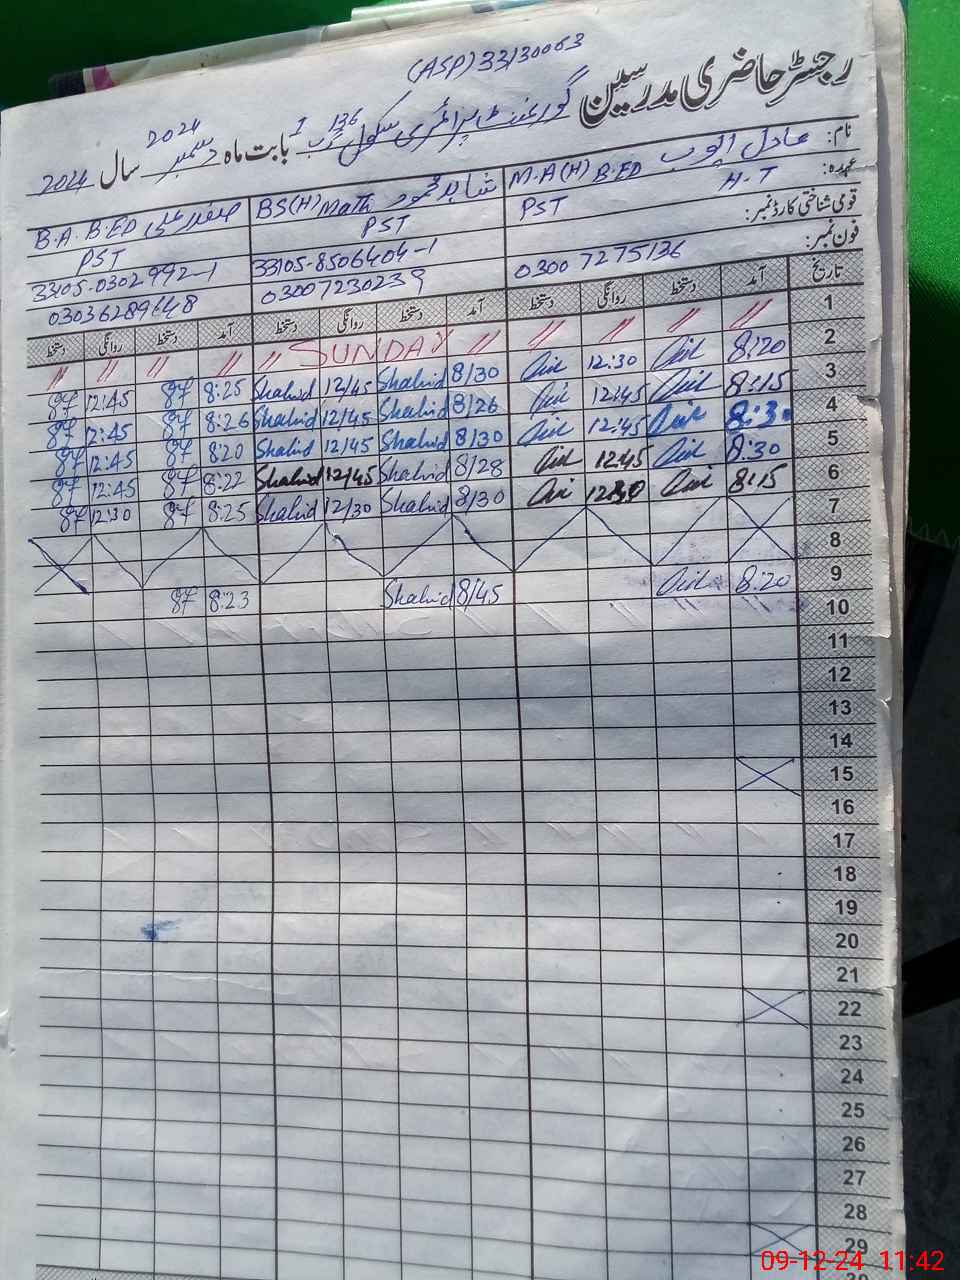 (ASP) 33130063
رجسٹر حاضری مدرسین گورنمنٹ پرائمری سکول 136 ر ب I بابت ماہ دسمبر 2024 سال 2024
نام: عادل ایوب M.A(H) B.ED شاہد محمود BS(H) Math صفدر علی B.A. B.ED
عہدہ: H.T PST PST PST
قومی شناختی کارڈ نمبر: 33105-8506404-1 33105-0302992-1
فون نمبر: 0300 7275136 03007230239 03036289648
تاریخ آمد دستخط روانگی دستخط آمد دستخط روانگی دستخط آمد دستخط روانگی دستخط
1 〃 〃 〃 〃 〃 SUNDAY 〃 〃 〃 〃 〃
2 8:20 12:30 8/30 Shahid 12/45 Shahid 8:25 12:45
3 8:15 12:45 8/26 Shahid 12/45 Shahid 8:26 12:45
4 8:30 12:45 8/30 Shahid 12/45 Shahid 8:20 12:45
5 8:30 12:45 8/28 Shahid 12/45 Shahid 8:22 12:45
6 8:15 12:30 8/30 Shahid 12/30 Shahid 8:25 12:30
7
8
9 8:20 8/45 Shahid 8:23
10
11
12
13
14
15
16
17
18
19
20
21
22
23
24
25
26
27
28
29
09-12-24 11:42